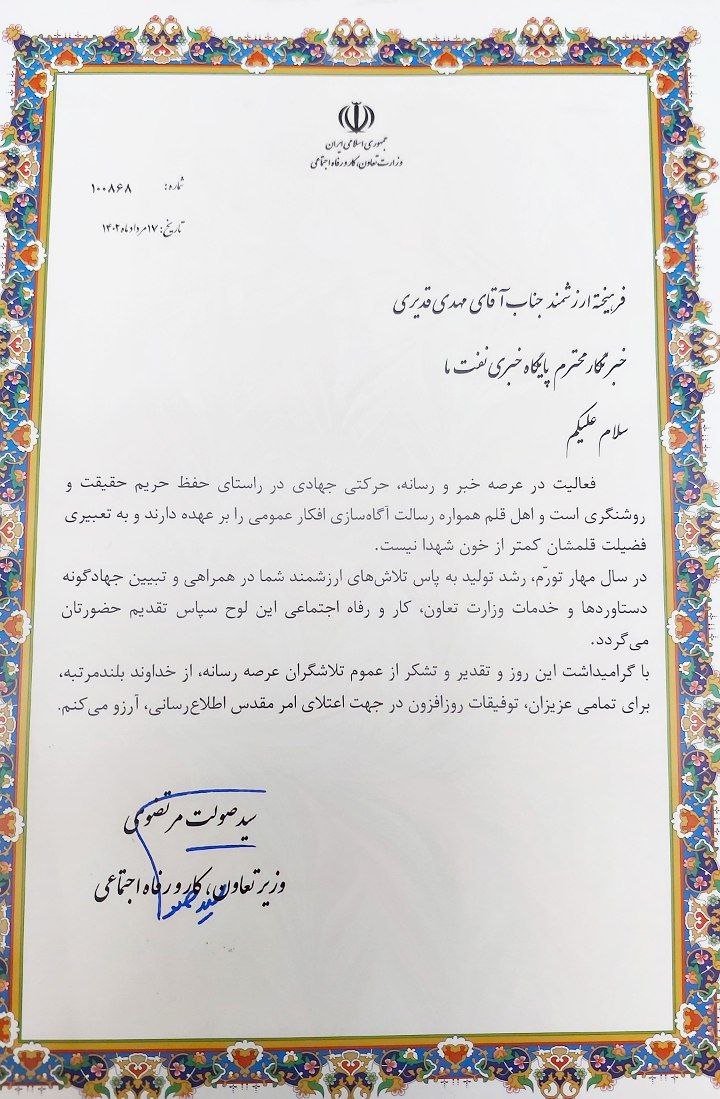 جمهوری اسلامی ایران
وزارت تعاون، کار و رفاه اجتماعی
شماره: ۱۰۰۸۶۸
تاریخ: ۱۷ مرداد ماه ۱۴۰۲
فرهیختهٔ ارزشمند جناب آقای مهدی قدیری
خبرنگار محترم پایگاه خبری نفت ما
سلام علیکم
فعالیت در عرصه خبر و رسانه، حرکتی جهادی در راستای حفظ حریم حقیقت و
روشنگری است و اهل قلم همواره رسالت آگاه‌سازی افکار عمومی را بر عهده دارند و به تعبیری
فضیلت قلمشان کمتر از خون شهدا نیست.
در سال مهار تورّم، رشد تولید به پاس تلاش‌های ارزشمند شما در همراهی و تبیین جهادگونه
دستاوردها و خدمات وزارت تعاون، کار و رفاه اجتماعی این لوح سپاس تقدیم حضورتان
می‌گردد.
با گرامیداشت این روز و تقدیر و تشکر از عموم تلاشگران عرصه رسانه، از خداوند بلندمرتبه،
برای تمامی عزیزان، توفیقات روزافزون در جهت اعتلای امر مقدس اطلاع‌رسانی، آرزو می‌کنم.
سید صولت مرتضوی
وزیر تعاون، کار و رفاه اجتماعی